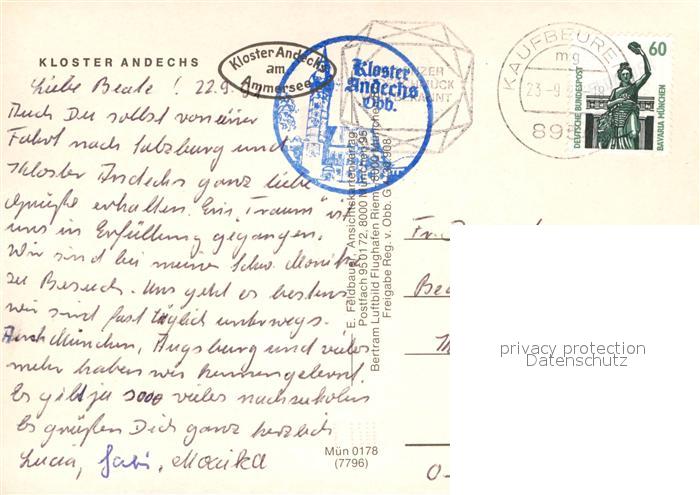 KLOSTER ANDECHS
Kloster Andechs
am
Ammersee
Kloster
Andechs
Obb.
KAUFBEUREN
mg
23-9
895
60
DEUTSCHE BUNDESPOST
BAVARIA MÜNCHEN
Liebe Beate! 22.9.
Auch Du sollst von einer
Fahrt nach Salzburg und
Kloster Andechs ganz liebe
Grüße erhalten. Ein "Traum" ist
uns in Erfüllung gegangen.
Wir sind bei meiner Schw. Monika
zu Besuch. Uns geht es bestens
wir sind fast täglich unterwegs.
Auch München, Augsburg und vieles
mehr haben wir kennengelernt.
Es gibt ja sooo vieles nachzuholen
Es grüßen Dich ganz herzlich
Lucia, Gabi, Monika
E. Feldbauer, Ansichtskartenverlag,
Postfach 95 01 72, 8000 München 95
Bertram Luftbild Flughafen Riem, 8000 München
Freigabe Reg. v. Obb. G 908
Mün 0178
(7796)
privacy protection
Datenschutz